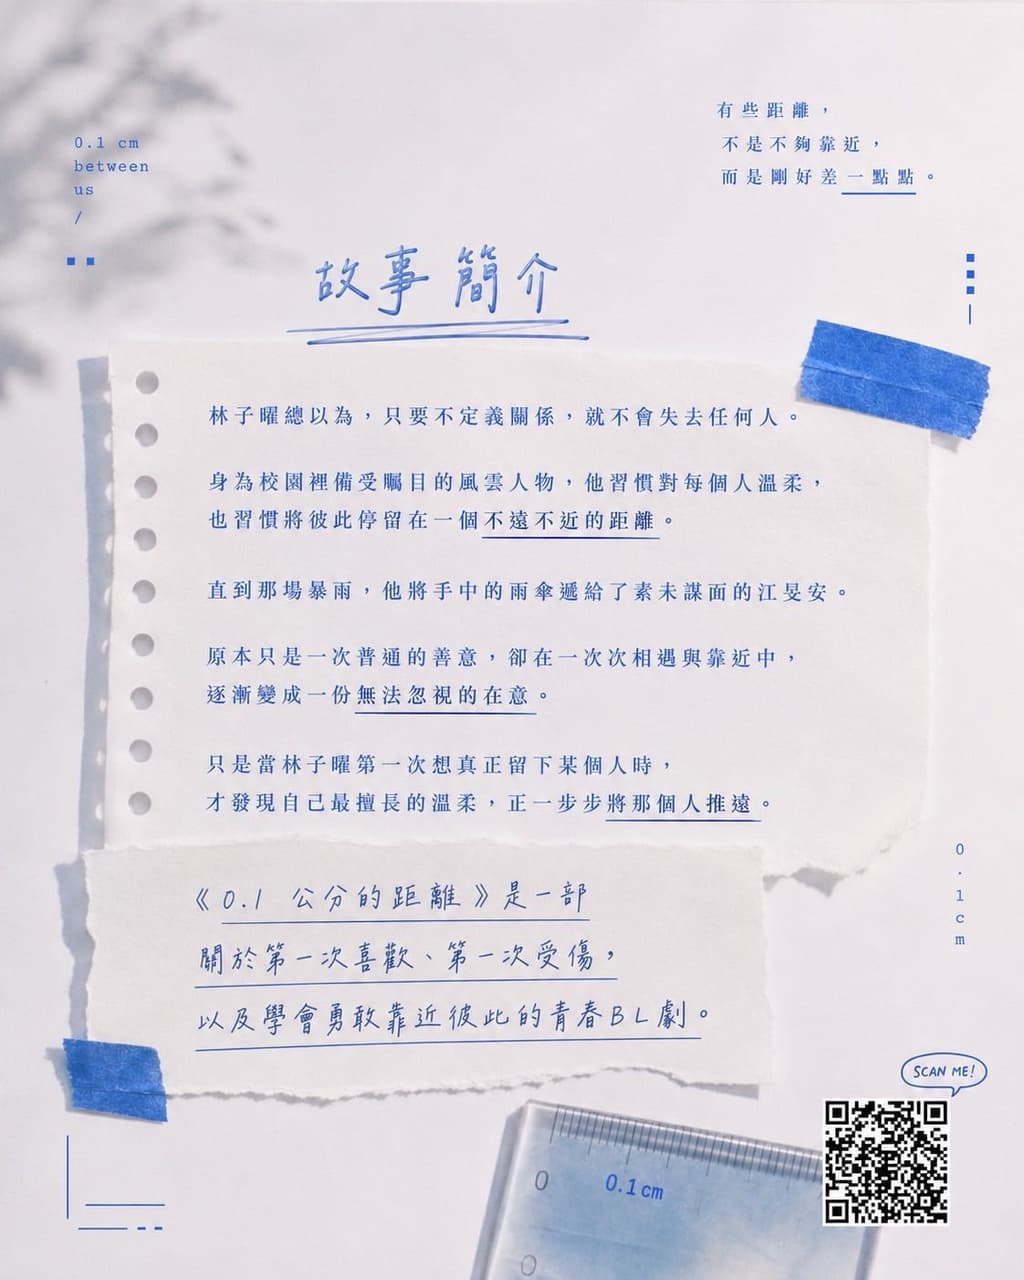 0.1 cm
between
us
/
有些距離，
不是不夠靠近，
而是剛好差一點點。
故事簡介
林子曜總以為，只要不定義關係，就不會失去任何人。
身為校園裡備受矚目的風雲人物，他習慣對每個人溫柔，
也習慣將彼此停留在一個不遠不近的距離。
直到那場暴雨，他將手中的雨傘遞給了素未謀面的江旻安。
原本只是一次普通的善意，卻在一次次相遇與靠近中，
逐漸變成一份無法忽視的在意。
只是當林子曜第一次想真正留下某個人時，
才發現自己最擅長的溫柔，正一步步將那個人推遠。
《0.1 公分的距離》是一部
關於第一次喜歡、第一次受傷，
以及學會勇敢靠近彼此的青春BL劇。
0.1cm
SCAN ME!
0
0.1cm
0